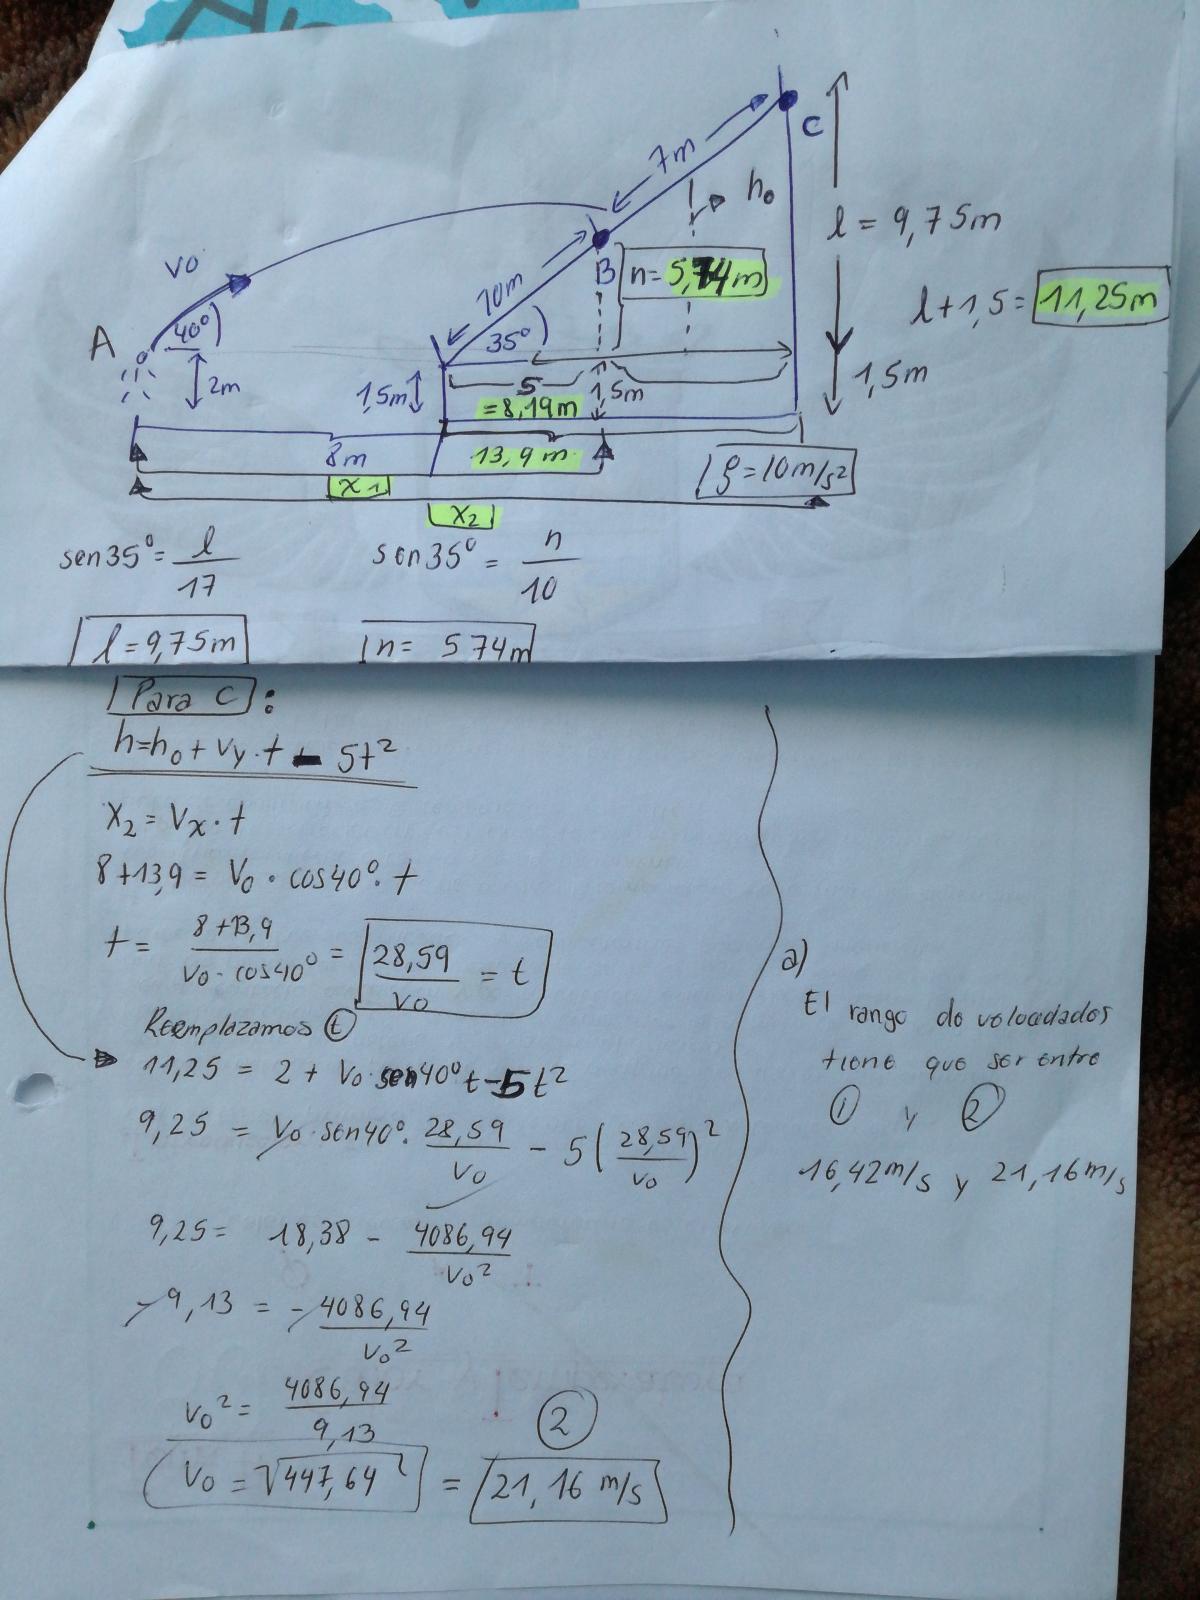 C
7m
h₀
l = 9,75m
V0
10m
B
n= 5,74m
l+1,5= 11,25m
A
40°
35°
2m
1,5m
5
= 8,19m
1,5m
1,5m
8m
13,9 m
x 1
x₂
g = 10 m/s²
sen35° = l/17
sen35° = n/10
l = 9,75m
n= 5 74m
Para C :
h=h₀ + Vy · t - 5t²
X₂ = Vx · t
8+13,9 = V₀ · cos40° · t
t = 8+13,9 / V₀ · cos40° = 28,59 / V₀ = t
Reemplazamos t
11,25 = 2 + V₀ · sen40° t - 5t²
9,25 = V₀ · sen40° · 28,59 / V₀ - 5 ( 28,59 / V₀ )²
9,25 = 18,38 - 4086,94 / V₀²
- 9,13 = - 4086,94 / V₀²
V₀² = 4086,94 / 9,13
2
V₀ = √447,64 ² = 21,16 m/s
a)
El rango de velocidades
tiene que ser entre
1 y 2
16,42m/s y 21,16m/s